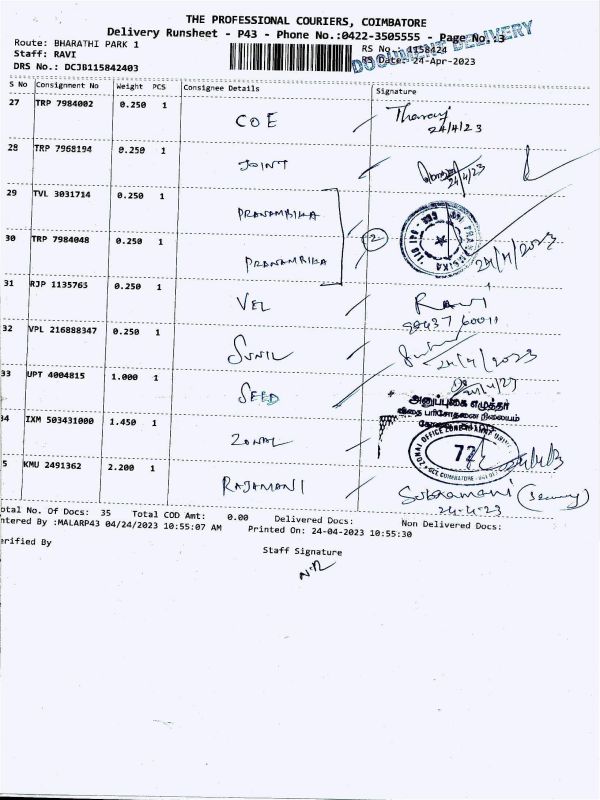 THE PROFESSIONAL COURIERS, COIMBATORE
Delivery Runsheet - P43 - Phone No.:0422-3505555 - Page No.:3
DOCUMENT DELIVERY
Route: BHARATHI PARK 1
RS No.: 1158424
Staff: RAVI
RS Date: 24-Apr-2023
DRS No.: DCJB115842403
S No Consignment No Weight PCS Consignee Details Signature
27 TRP 7984002 0.250 1 COE
24/4/23
28 TRP 7968194 0.250 1 JOINT
24/4/23
29 TVL 3031714 0.250 1 PRANAMBIKA
30 TRP 7984048 0.250 1 PRANAMBIKA 2
24/4/2023
31 RJP 1135765 0.250 1 VEL Ravi
32 VPL 216888347 0.250 1 SUNIL
24/4/2023
33 UPT 4004815 1.000 1 SEED
அனுப்புகை எழுத்தர்
விதை பரிசோதனை நிலையம்
34 IXM 503431000 1.450 1 ZONAL
ZONAL OFFICE
72
5 KMU 2491362 2.200 1 RAJAMANI
Subramani (Security)
24-4-23
otal No. Of Docs: 35 Total COD Amt: 0.00 Delivered Docs: Non Delivered Docs:
ntered By :MALARP43 04/24/2023 10:55:07 AM Printed On: 24-04-2023 10:55:30
erified By
Staff Signature